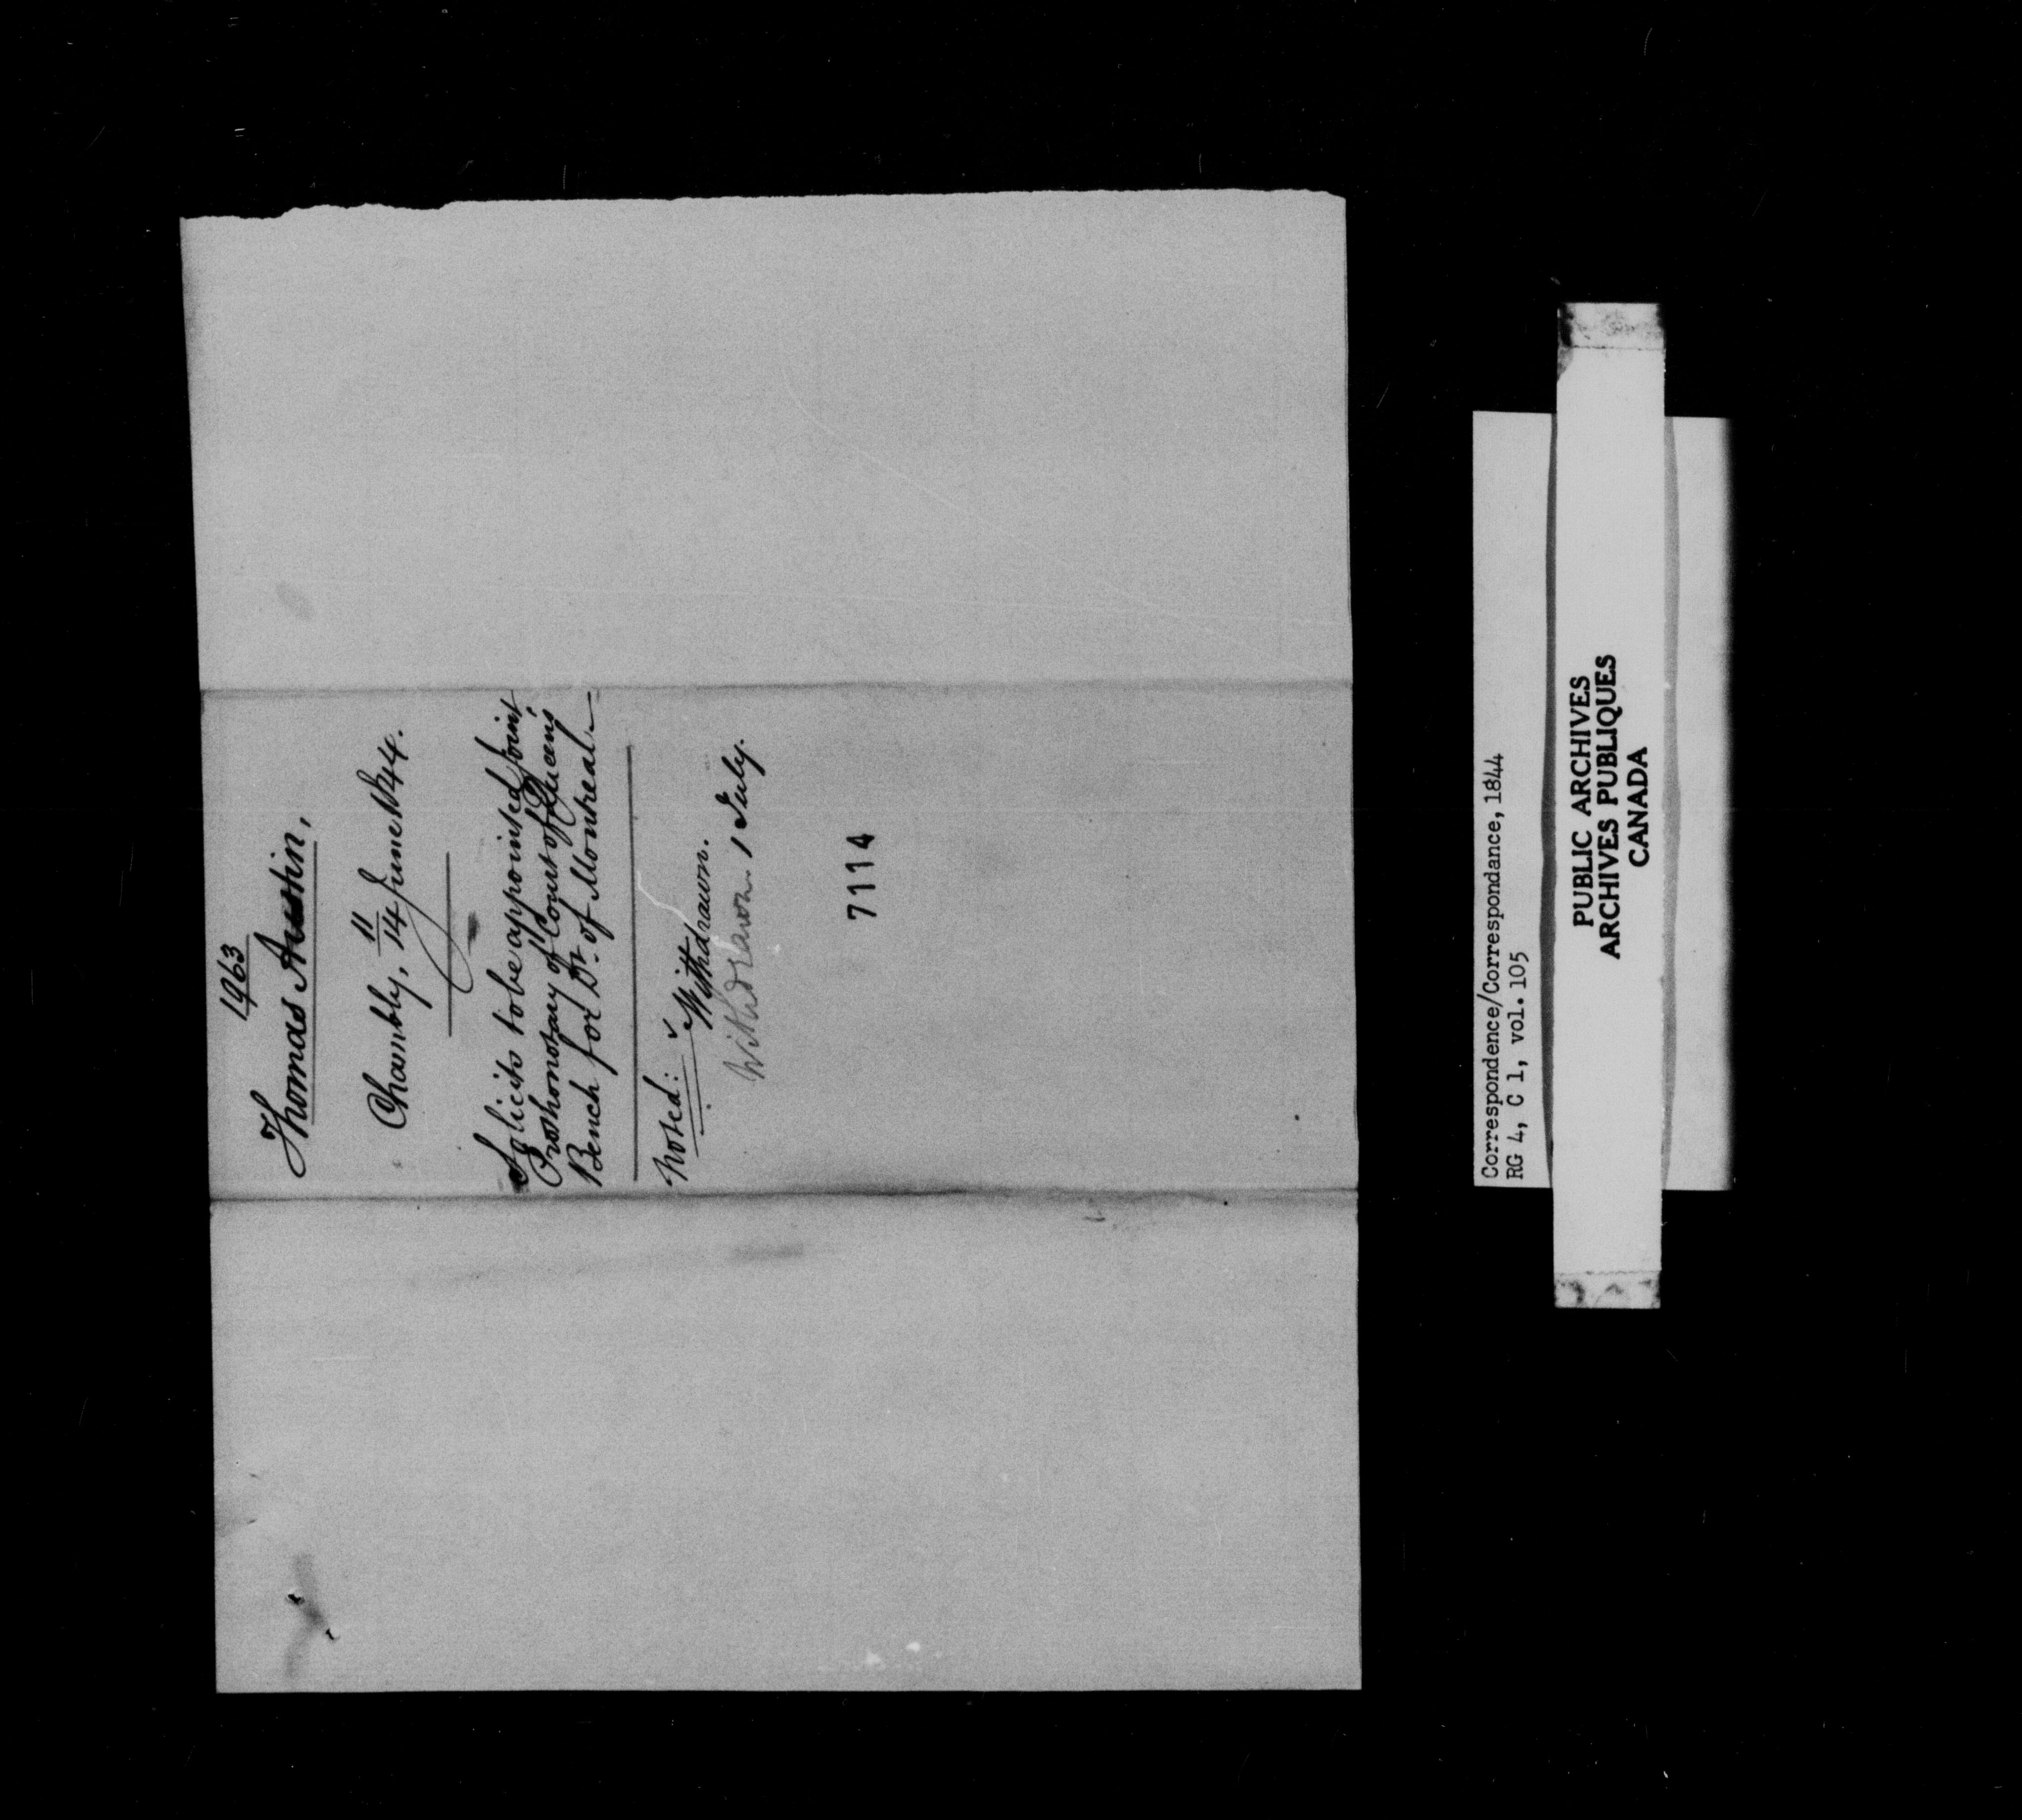 1963
Thomas Austin,
Chambly, 11/14 June 1844.
Solicits to be appointed joint
Prothonotary of Court of Queen's
Bench for Dt. of Montreal
Noted: Withdrawn.
Withdrawn. 1 July.
7114
Correspondence/Correspondance, 1844
RG 4, C 1, vol. 105
PUBLIC ARCHIVES
ARCHIVES PUBLIQUES
CANADA